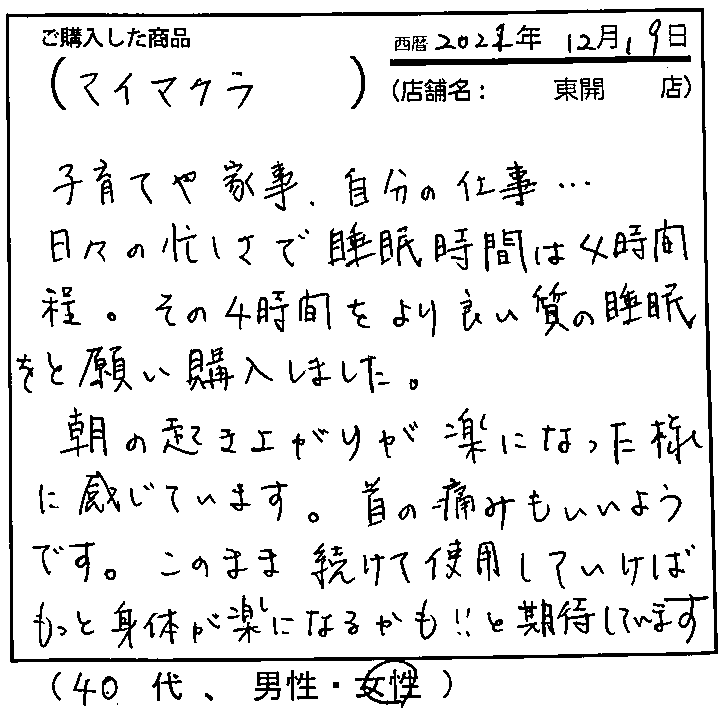 ご購入した商品
西暦 2021年 12月19日
(マイマクラ)
(店舗名: 東開 店)
子育てや家事、自分の仕事…
日々の忙しさで睡眠時間は4時間
程。その4時間をより良い質の睡眠
をと願い購入しました。
朝の起き上がりが楽になった様
に感じています。首の痛みもいいよう
です。このまま続けて使用していけば
もっと身体が楽になるかも!!と期待しています
(40 代、男性・女性)